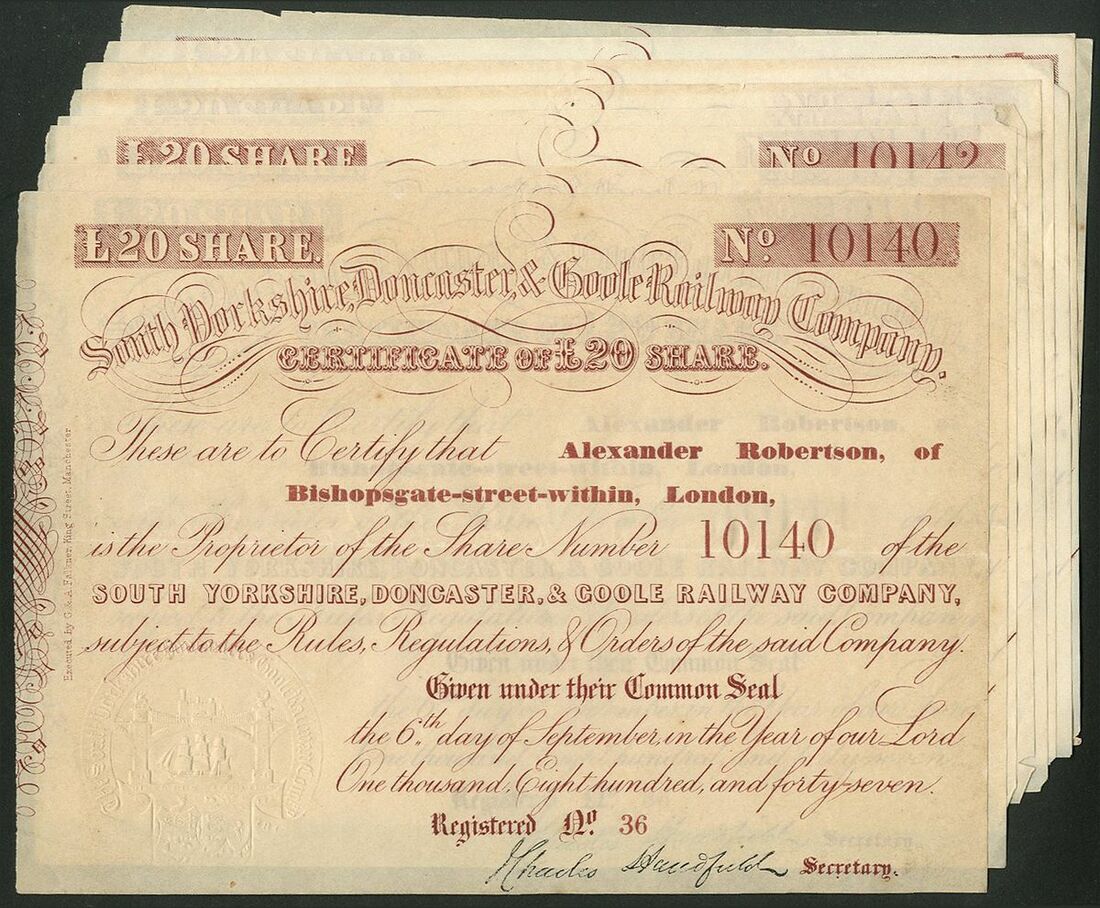 £20 SHARE No 10142
£20 SHARE. No. 10140
South Yorkshire, Doncaster, & Goole Railway Company.
CERTIFICATE OF £20 SHARE.
These are to Certify that Alexander Robertson, of
Bishopsgate-street-within, London,
is the Proprietor of the Share Number 10140 of the
SOUTH YORKSHIRE, DONCASTER, & GOOLE RAILWAY COMPANY,
subject to the Rules, Regulations, & Orders of the said Company.
Given under their Common Seal
the 6th day of September, in the Year of our Lord
One thousand, Eight hundred, and forty-seven.
Registered No. 36
Charles Handfield Secretary.
Executed by G. & A. Falkner, King Street, Manchester